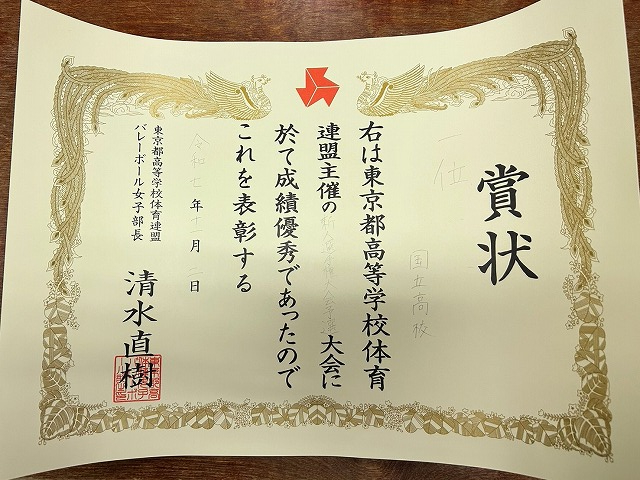 賞状
一位
国立高校
右は東京都高等学校体育
連盟主催の新人選手権大会予選大会に
於て成績優秀であったので
これを表彰する
令和七年十一月二日
東京都高等学校体育連盟
バレーボール女子部長
清水直樹